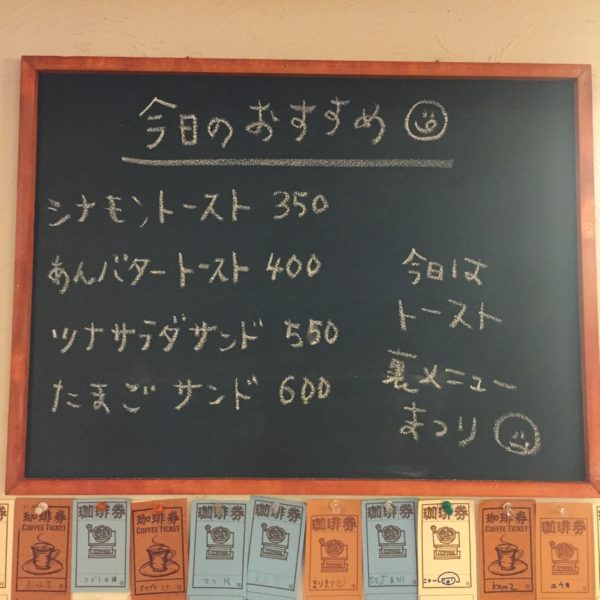 今日のおすすめ
シナモントースト 350
あんバタートースト 400
ツナサラダサンド 550
たまごサンド 600
今日は
トースト
裏メニュー
まつり
珈琲券
COFFEE TICKET
珈琲券
珈琲券
COFFEE TICKET
珈琲券
珈琲券
珈琲券
きりまりり
珈琲券
珈琲券
珈琲券
COFFEE TICKET
珈琲券
ユウキ